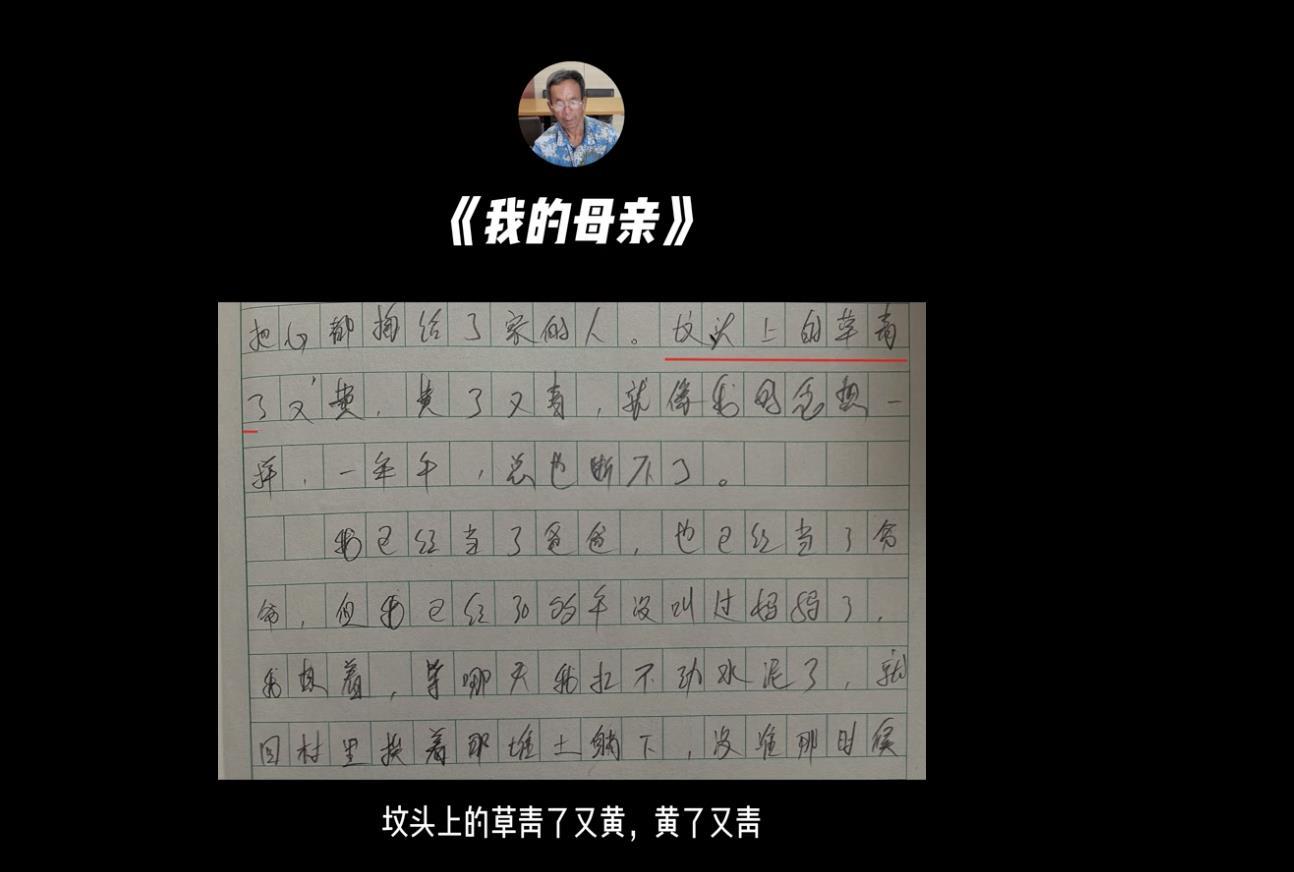 《我的母亲》
把心都掏给了家的人。坟头上的草青
了又黄，黄了又青，就像我的念想一
样，一年年，总也断不了。
我已经当了爸爸，也已经当了爷
爷，但我已经30的年没叫过妈妈了，
我想着，等哪天我扛不动水泥了，就
回村里挨着那堆土躺下，没准那时候
坟头上的草青了又黄，黄了又青